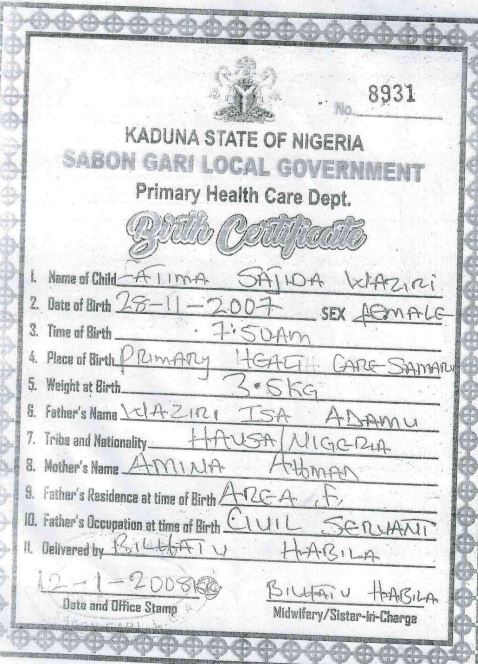 No. 8931
KADUNA STATE OF NIGERIA
SABON GARI LOCAL GOVERNMENT
Primary Health Care Dept.
Birth Certificate
1. Name of Child FATIMA SAJIDA WAZIRI
2. Date of Birth 28-11-2007 SEX FEMALE
3. Time of Birth 7:50AM
4. Place of Birth PRIMARY HEALTH CARE SAMARU
5. Weight at Birth 3.5KG
6. Father's Name WAZIRI ISA ADAMU
7. Tribe and Nationality HAUSA/NIGERIA
8. Mother's Name AMINA
9. Father's Residence at time of Birth AREA F,
10. Father's Occupation at time of Birth CIVIL SERVANT
11. Delivered by BILHATU HABILA
12-1-2008 BILHATU HABILA
Date and Office Stamp Midwifery/Sister-in-Charge